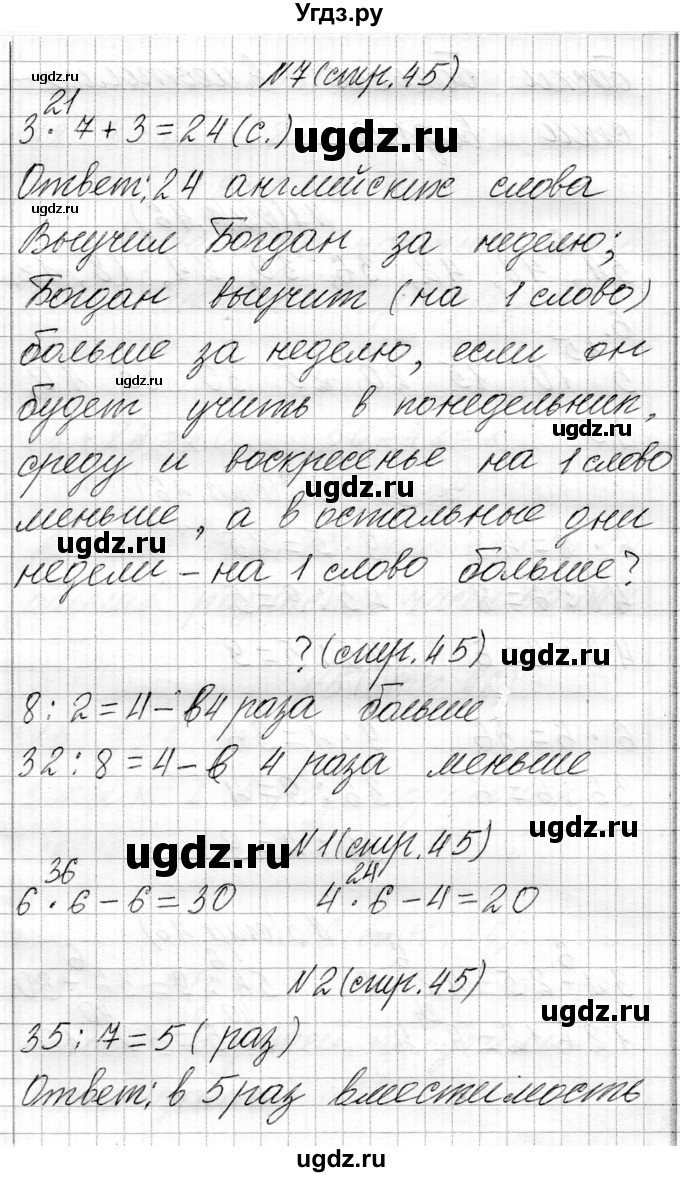 Угдз.ру
№7(стр.45)
21
3·7+3=24(с.)
Ответ: 24 английских слова
Выучил Богдан за неделю;
Богдан выучит (на 1 слово)
больше за неделю, если он
будет учить в понедельник,
среду и воскресенье на 1 слово
меньше, а в остальные дни
недели – на 1 слово больше?
?(стр.45)
8:2=4 – в 4 раза больше
32:8=4 – в 4 раза меньше
№1(стр.45)
36 24
6·6-6=30 4·6-4=20
№2(стр.45)
35:7=5(раз)
Ответ: в 5 раз вместимость
ugdz.ru
ugdz.ru
ugdz.ru
ugdz.ru
ugdz.ru
ugdz.ru
ugdz.ru
ugdz.ru
ugdz.ru
ugdz.ru
ugdz.ru
ugdz.ru
ugdz.ru